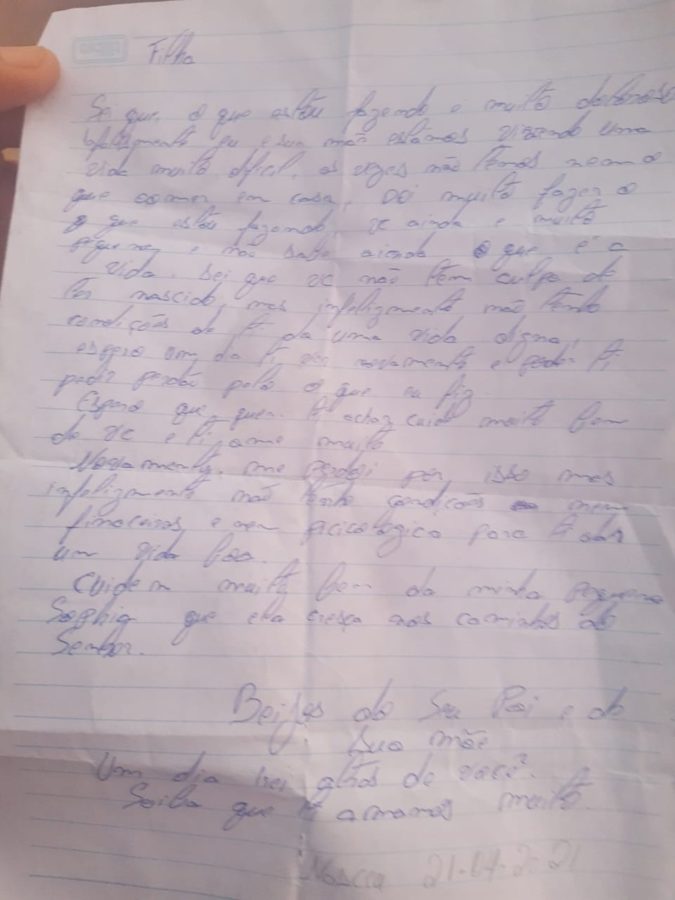 Filha
Sei que o que estou fazendo e muito doloroso
infelizmente eu e sua mãe estamos vivendo uma
vida muito dificil, as vezes não temos nem o
que comer em casa, Dói muito fazer o
o que estou fazendo, vc ainda e muito
pequena e não sabe ainda o que é a
vida. Sei que vc não tem culpa de
ter nascido, mas infelizmente não tenho
condições de ti da uma vida digna,
espero um dia ti ver novamente e ti
pedir perdão pelo o que eu fiz
Espero que quem ti achar cuide muito bem
de vc e ti ame muito
Novamente me perdoi por isso mas
infelizmente não tenho condições nem
finaceiras e nem picicologica para ti dar
um vida boa.
Cuidem muito bem da minha pequena
Sophia que ela cresça nos caminhos do
Senhor.
Beijos do seu Pai e da
sua mãe
Um dia irei atras de você.
Saiba que ti amamos muito.
Nasceu 21-04-2021